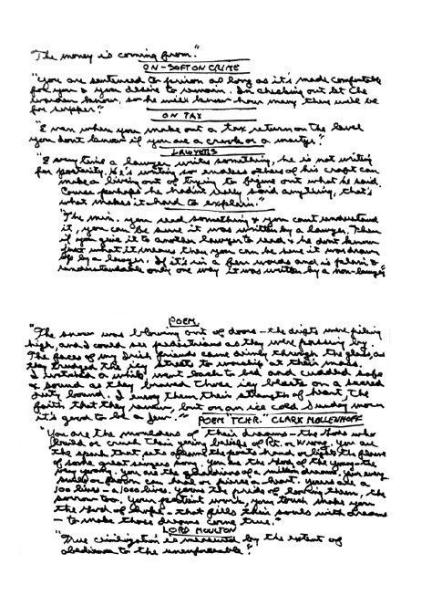 The money is coming from."
ON - SOFT ON CRIME
"You are sentenced to prison as long as it's made comfortable
for you & you desire to remain. In checking out let the
warden know, so he will know how many there will be
for supper."
ON TAX
"Even when you make out a tax return on the level
you don't know if you are a crook or a martyr."
LAWYERS
"Every time a lawyer writes something, he is not writing
for posterity. He's writing so makes others of his craft can
make a living out of trying to figure out what he said.
Course perhaps he hadn't really said anything, that's
what makes it hard to explain."
The min. you read something & you can't understand
it, you can be sure it was written by a lawyer. Then
if you give it to another lawyer to read & he don't know
just what it means then you can be sure it was drawn
up by a lawyer. If it's in a few words and is plain &
understandable only one way it was written by a non-lawyer
POEM
"The snow was blowing out of doors - the drifts were piling
high, and I could see pedestrians as they were passing by.
The faces of my Irish friends came dimly through the glass, as
they trudged the icy streets to worship at their mass.
I watched a while went back to bed and cuddled
& sound as they braved those icy blasts on a sacred
duty bound. I envy them their strength of heart, the
faith that they renew, but on an ice cold Sunday morn
it's good to be a Jew."
POEM TCHR. CLARK MOLLENHOFF
"You are the moulders of their dreams - the Gods who
build or crush their young beliefs of rt. or wrong. You are
the spark that sets aflame the poets hand or lights the flame
of some great singers song. You are the Gods of the young - the
very young. You are the guardians of a million dreams. Your every
smile or frown can heal or pierce a heart. Yours are a
100 lives - a 1000 lives. Yours the pride of loving them, the
sorrow too. Your patient work, your touch make you
the God of hope - that fills their souls with dreams
- to make those dreams come true."
LORD MOULTON
"True civilization is measured by the extent of
obedience to the unenforceable."